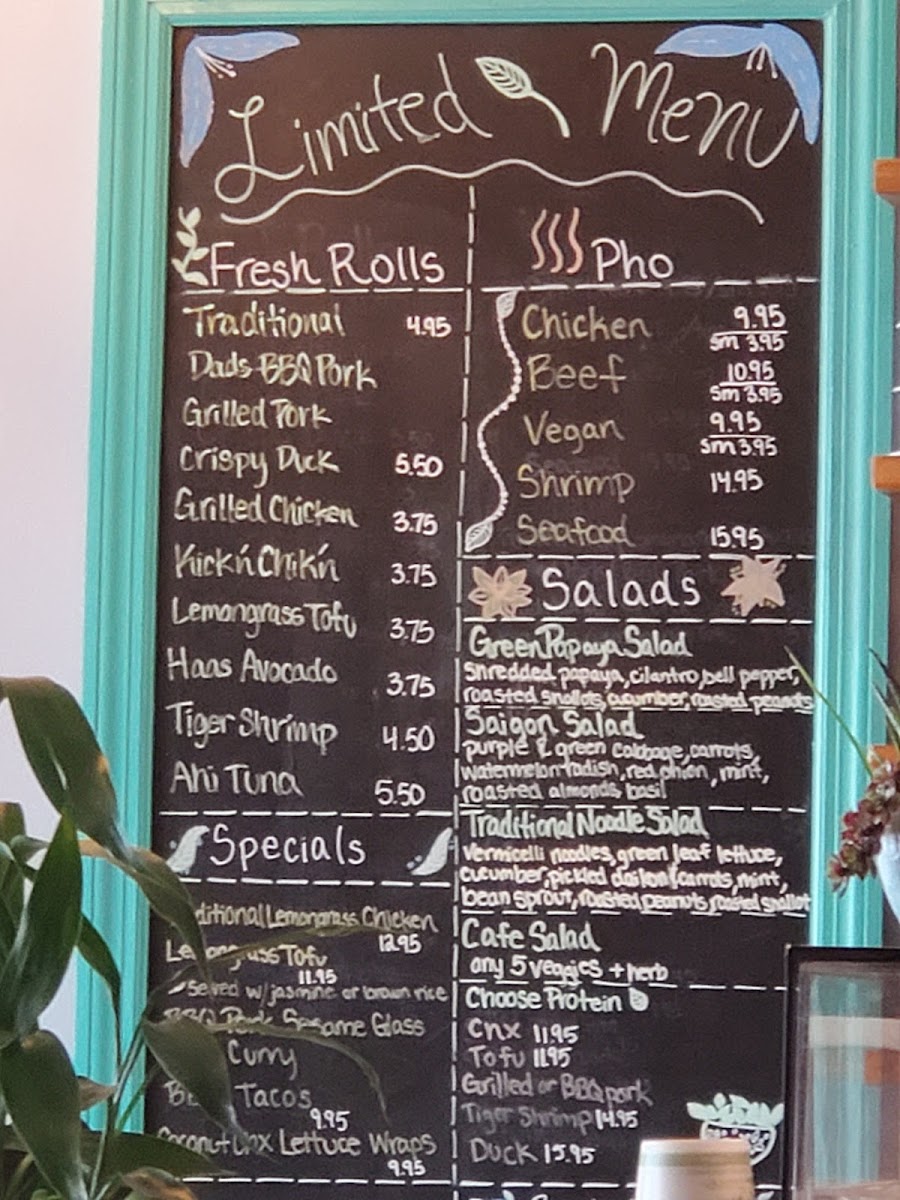 Limited Menu
Fresh Rolls
Traditional 4.95
Dads BBQ Pork
Grilled Pork
Crispy Duck 5.50
Grilled Chicken 3.75
Kick'n Chik'n 3.75
Lemongrass Tofu 3.75
Haas Avocado 3.75
Tiger Shrimp 4.50
Ahi Tuna 5.50
Specials
ditional Lemongrass Chicken
12.95
Lemongrass Tofu
11.95
Served w/jasmine or brown rice
BBQ Pork Sesame Glass
Curry
Tacos
9.95
Coconut Cnx Lettuce Wraps
9.95
Pho
Chicken 9.95
sm 3.95
Beef 10.95
sm 3.95
Vegan 9.95
sm 3.95
Shrimp 14.95
Seafood 15.95
Salads
Green Papaya Salad
Shredded papaya, cilantro, bell pepper,
roasted shallots, cucumber, roasted peanuts
Saigon Salad
purple & green cabbage, carrots,
watermelon radish, red onion, mint,
roasted almonds, basil
Traditional Noodle Salad
vermicelli noodles, green leaf lettuce,
cucumber, pickled daikon/carrots, mint,
bean sprout, roasted peanuts, roasted shallot
Cafe Salad
any 5 veggies + herb
Choose Protein
Cnx 11.95
Tofu 11.95
Grilled or BBQ pork
Tiger Shrimp 14.95
Duck 15.95